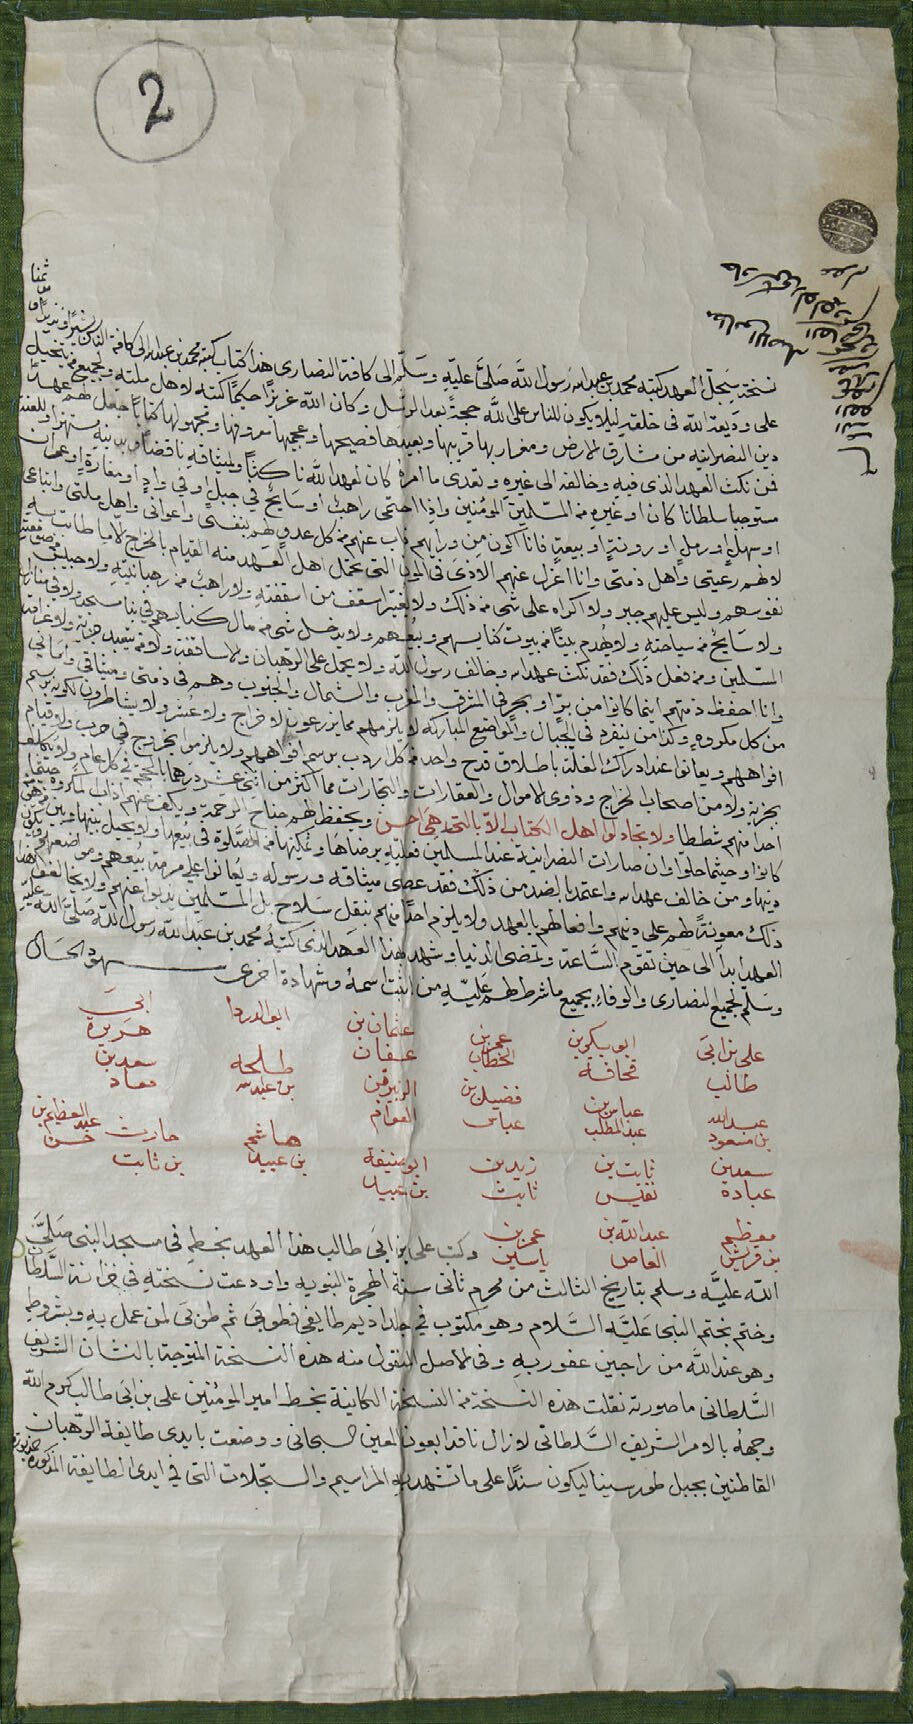 2
نسخة سجل العهد كتبه محمد بن عبد الله رسول الله صلى الله عليه وسلم الى كافة النصارى هذا كتاب كتبه محمد بن عبد الله الى كافة الناس بشيرًا ونذيرًا
على وديعة الله فى خلقه ليلا يكون للناس على الله حجة بعد الرسل وكان الله عزيزًا حكيمًا كتبه لاهل ملته ولجميع من ينتحل
دين النصرانيه من مشارق الارض ومغاربها قريبها وبعيدها فصيحها وعجيمها معروفها ومجهولها كتابًا جعل لهم عهدًا
فمن نكث العهد الذى فيه وخالفه الى غيره وتعدى ما امره كان لعهد الله ناكثًا ولميثاقه ناقضًا وبدينه مستهزئًا وللعنة
مستوجبا سلطانا كان او غيره من المسلمين المومنين واذا احتمى راهب او سايح فى جبل او فى وادٍ او مغارة او عمران
او سهل او رمل او رونة او بيعة فانا اكون من ورايهم ذاب عنهم من كل عدو لهم بنفسى واعوانى واهل ملتى واتباعى
لانهم رعيتى واهل ذمتى وانا اعزل عنهم الاذى فى المون التى تحمل اهل العهد منه القيام بالخراج الا ما طابت به
نفوسهم وليس عليهم جبر ولا اكراه على شى من ذلك ولا يغير اسقف من اسقفته ولا راهب من رهبانيته ولا حبيس من صومعته
ولا سايح من سياحته ولا يهدم بيتًا من بيوت كنايسهم وبيعهم ولا يدخل شى من مال كنايسهم فى بنا مسجد ولا فى منازل
المسلمين ومن فعل ذلك فقد نكث عهد الله وخالف رسول الله ولا يحمل على الرهبان والاساقفة ولا من يتعبد جزية ولا غرامة
وانا احفظ ذمتهم اينما كانوا من بر او بحر فى المشرق والمغرب والشمال والجنوب وهم فى ذمتى وميثاقى وامانى
من كل مكروه وكذا من ينفرد فى الجبال والمواضع المباركة لا يلزمهم مما يزرعون لا خراج ولا عشر ولا يشاطرون لكونه برسم
افواههم ويعانوا عند ادراك الغلة باطلاق قدح واحد من كل اردب برسم افواههم ولا يلزموا بخروج فى حرب ولا قيام
بجزية ولا من اصحاب الخراج وذوى الاموال والعقارات والتجارات مما اكثر من اثنى عشر درهمًا بالحجة فى كل عام ولا يكلف
احدًا منهم شططا ولا تجادلوا اهل الكتاب الا بالتى هى احسن ويحفظ لهم جناح الرحمة ويكف عنهم اذب المكروه حيثما
كانوا وحيثما حلوا وان صارت النصرانية عند المسلمين فعليه برضاها وتمكينها من الصلوة فى بيعها ولا يحيل بينها وبين هوى
دينها ومن خالف عهد الله واعتمد بالضد من ذلك فقد عصى ميثاقه ورسوله ويعانوا على مرمة بيعهم ومواضعهم وتكون
ذلك معونة لهم على دينهم وافعالهم بالعهد ولا يلزم احدًا منهم بنقل سلاح بل المسلمين يذبوا عنهم ولا يخالف هذا
العهد ابدًا الى حين تقوم الساعة وتنقضى الدنيا وشهد بهذا العهد الذى كتبه محمد بن عبد الله رسول الله صلى الله عليه
وسلم لجميع النصارى والوفاء بجميع ما شرط لهم عليه من اثبت اسمه وشهادة اخرى شهود الحال
على بن ابى طالب ابو بكر بن قحافة عمر بن الخطاب عثمان بن عفان ابو الدردا ابى هريرة
عبد الله بن مسعود عباس بن عبد المطلب فضيل بن عباس الزبير بن العوام طلحه بن عبد الله سعد بن معاد
سعد بن عبادة ثابت بن نفيس زيد بن ثابت ابو حنيفة بن عبيد هاشم بن عبيد حارث بن ثابت عبد العظيم بن حسن
معظم بن قريش عبد الله بن العاص عمر بن ياسين
وكتب على بن ابى طالب هذا العهد بخطه فى مسجد النبى صلى
الله عليه وسلم بتاريخ الثالث من محرم ثانى سنة الهجرة النبويه واودعت نسخته فى خزانة السلطان
وختم بختم النبى عليه السلام وهو مكتوب فى جلد اديم طايفى فطوبى ثم طوبى لمن عمل به وبشروطه
وهو عند الله من راجين عفو ربه وفى الاصل المنقول منه هذه النسخة المتوجة بالنشان الشريف
السلطانى ما صورته نقلت هذه النسخة من النسخة الكاينة بخط امير المومنين على بن ابى طالب كرم الله
وجهه بالامر الشريف السلطانى لا زال نافدا بعون المعين السبحانى ووضعت بايدى طايفة الرهبان
القاطنين بجبل طور سينا ليكون سندًا على ما تشهد به المراسيم والسجلات التى فى ايدى الطايفة المذكورة